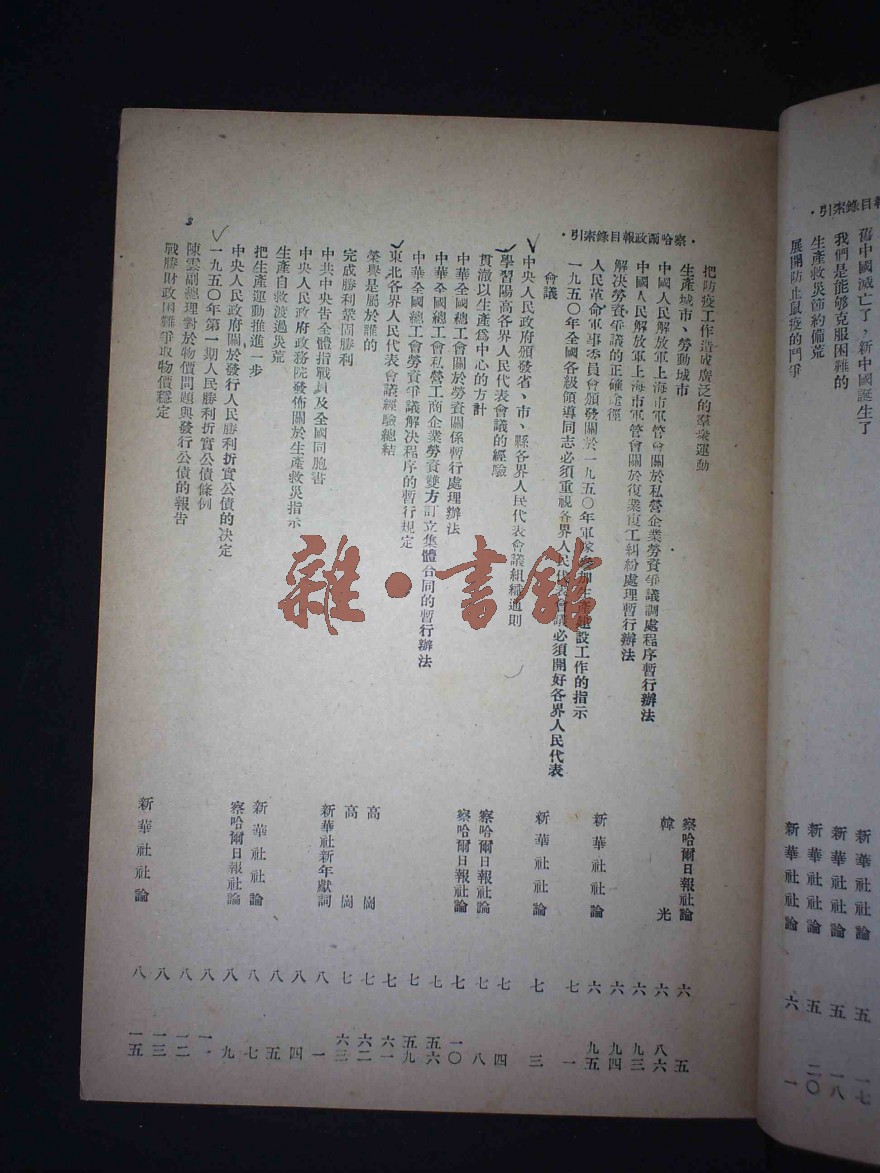 ·察哈爾政報目錄索引·
舊中國滅亡了，新中國誕生了 新華社社論 五 一七
我們是能够克服困難的 新華社社論 五 一八
生產救災節約備荒 新華社社論 五 二〇
展開防止鼠疫的鬥爭 新華社社論 六 一
·察哈爾政報目錄索引·
把防疫工作造成廣泛的羣衆運動 察哈爾日報社論 六 五
生產城市、勞動城市 韓光 六 八六
中國人民解放軍上海市軍管會關於私營企業勞資爭議調處程序暫行辦法 六 九三
中國人民解放軍上海市軍管會關於復業復工糾紛處理暫行辦法 六 九四
解決勞資爭議的正確途徑 新華社社論 六 九五
人民革命軍事委員會頒發關於一九五〇年軍隊參加生產建設工作的指示 七 一
一九五〇年全國各級領導同志必須重視各界人民代表會議必須開好各界人民代表
會議 新華社社論 七 三
中央人民政府頒發省、市、縣各界人民代表會議組織通則 七 四
學習陽高各界人民代表會議的經驗 察哈爾日報社論 七 八
貫澈以生產爲中心的方計 察哈爾日報社論 七 一〇
中華全國總工會關於勞資關係暫行處理辦法 七 五六
中華全國總工會私營工商企業勞資雙方訂立集體合同的暫行辦法 七 五九
中華全國總工會勞資爭議解決程序的暫行規定 七 六一
東北各界人民代表會議經驗總結 高崗 七 六二
榮譽是屬於誰的 高崗 七 六三
完成勝利鞏固勝利 新華社新年獻詞 八 一
中共中央告全體指戰員及全國同胞書 八 四
中央人民政府政務院發佈關於生產救災指示 八 五
生產自救渡過災荒 新華社社論 八 七
把生產運動推進一步 察哈爾日報社論 八 九
中央人民政府關於發行人民勝利折實公債的決定 八 一一
一九五〇年第一期人民勝利折實公債條例 八 一二
陳雲副總理對於物價問題與發行公債的報告 八 一三
戰勝財政困難爭取物價穩定 新華社社論 八 一五
3
雜·書館